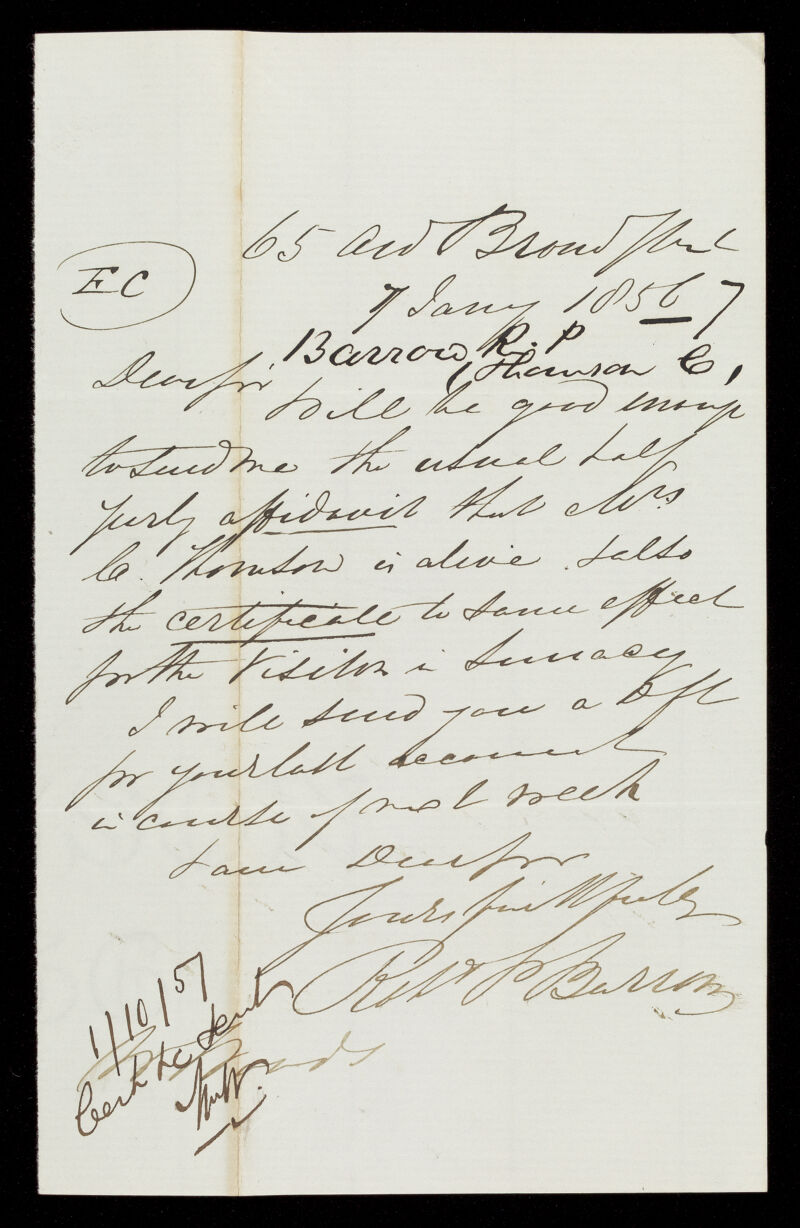 65 Old Broad Street
EC
7 Jany 1856 7
Barrow R. P
(Thomson C,
Dear Sir
Will be good enough
to send me the usual half
yearly affidavit that Mrs
C. Thomson is alive & also
the certificate to same effect
for the Visitor in Lunacy
I will send you a Dft
for your last account
in course of next week
I am Dear Sir
Yours faithfully
Robt P Barrow
1/10/57
Certte sent